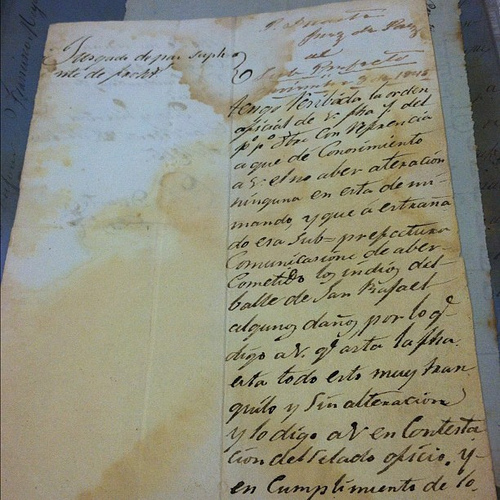 Juzgado de paz suplen
te de
Juez de Paz
al
Sub Prefecto
tengo Recibido la orden
oficial de V. fha y del
pp.º Otre con Referencia
a que de Conosimiento
a V. el no aber alteracion
ninguna en esta de mi
mando, y que a estraña
do esa Sub=prefectura
Comunicacione de aber
Cometido los indios del
balle de San Rafael
algunos daños por lo q.e
digo a V. q.e asta la fha.
esta todo esto muy tran
quilo y Sin alteracion
y lo digo a V en Contesta
cion del Relado oficio. Y
en Cumplimiento de lo